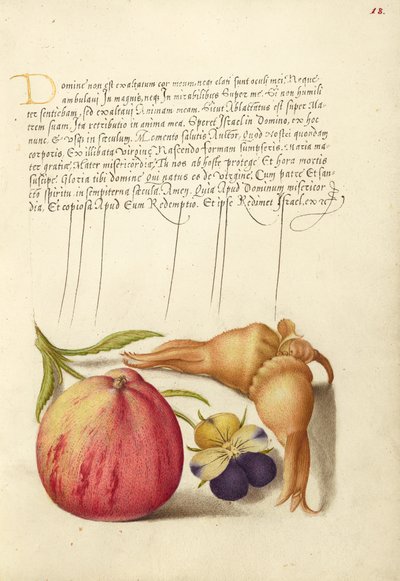 18.
Domine non est exaltatum cor meum, neqꝫ elati sunt oculi mei. Neque
ambulavi In magnis, neqꝫ In mirabilibus Super me. Si non humili
ter sentiebam, sed exaltavi Animam meam. Sicut Ablactatus est super Ma-
trem suam, Ita retributio in anima mea. Speret Israel in Domino, ex hoc
nunc. & Usqꝫ in sæculum. Memento salutis Auctor, Quod Nostri quondam
corporis, Ex illibata Virgine Nascendo formam sumpseris. Maria ma-
ter gratiæ, Mater misericordiæ, Tu nos ab hoste protege Et hora mortis
suscipe. Gloria tibi domine Qui natus es de virgine, Cum patre Et san-
cto spiritu, in sempiterna sæcula. Amen. Quia Apud Dominum misericor
dia, Et copiosa Apud Eum Redemptio. Et ipse Redimet Israel, ex